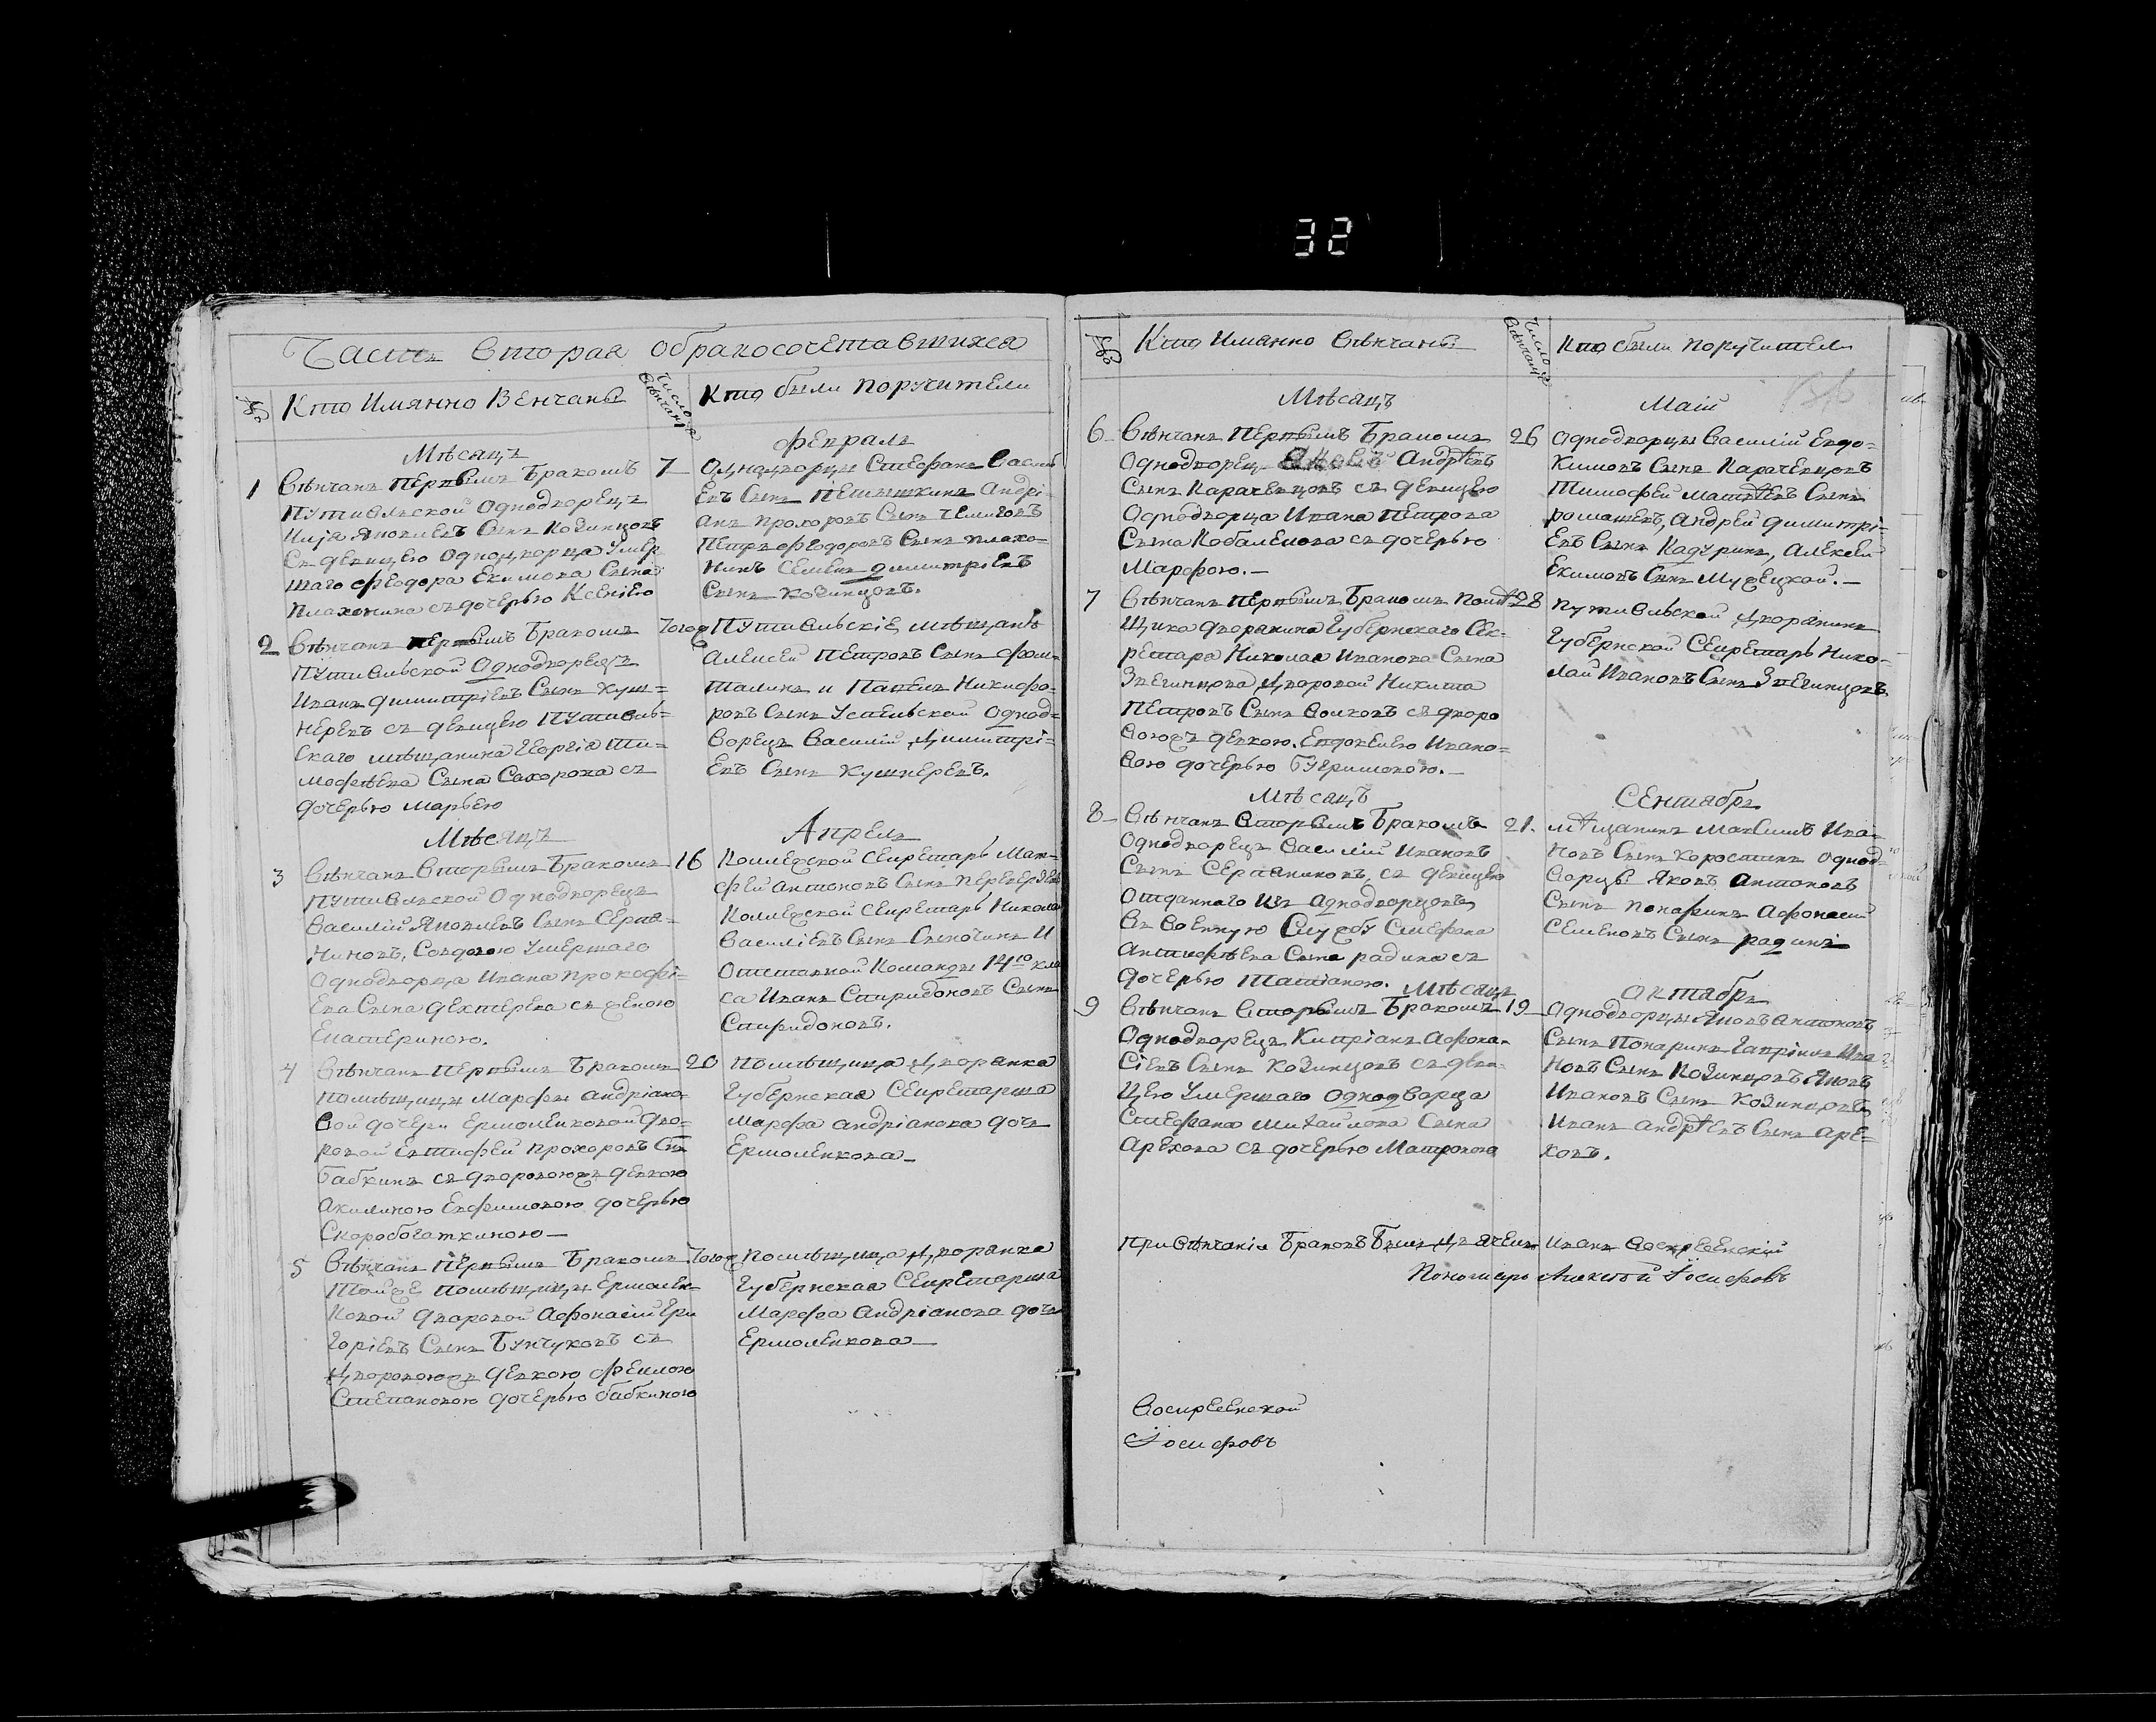 32
Часть вторая обракосочетавшихся
№
Кто Имянно Венчаны
Число венчан:
Кто были поручители
Мѣсяцъ
февраль
1
Вѣнчанъ первымъ бракомъ
Путивльской Однодворецъ
Яковлевъ Сынъ Козинцовъ
Съ девицею однодворца умер
шаго Феодора Екимова Сына
Плахонина съ дочерью Ксениею
7
Однодворцы Стефанъ Васил
евъ Сынъ Андрі
анъ Прохоровъ Сынъ
Петръ Феодоровъ Сынъ Плахо-
нинъ Семенъ Димитріевъ
Сынъ Козинцовъ.
2
Вѣнчанъ первымъ бракомъ
Путивльской Однодворецъ
Иванъ Димитріевъ Сынъ Куш=
неревъ съ девицею Путивль=
скаго мѣщанина Георгія Ти=
мофѣева Сына Сахорова съ
дочерью Марьею
Тогож
Путивльскіе мѣщанѣ
Алексей Петровъ Сынъ Фом=
талинъ и Павелъ Никифо=
ровъ Сынъ Однод=
ворецъ Василій Димитрі=
евъ Сынъ Кушнеревъ.
Мѣсяцъ
Апрель
3
Вѣнчанъ вторымъ бракомъ
Путивльской Однодворецъ
Василій Яковлевъ Сынъ Серпя=
никовъ, Совдовою умершаго
Однодворца Ивана Прокофі=
ева Сына Дехтерева съ женою
Екатериною.
16
Коллежской Секретарь Мат=
фей Антоновъ Сынъ
Коллежской Секретарь Никола
Василіевъ Сынъ И
Отставной Команды 14го кла
са Иванъ Спиридоновъ Сынъ
Спиридоновъ.
4
Вѣнчанъ первымъ бракомъ
помѣщицы Марфы Андріано=
вой дочери Ермоленковой дво=
ровой Евтифей Прохоровъ Сн
Бабкинъ съ дворовоюжъ девкою
Акилиною Евфимовою дочерью
Скоробогаткиною—
20
Помѣщица Дворянка
Губернская Секретарша
Марфа Андріанова дочь
Ермоленкова—
5
Вѣнчанъ первымъ бракомъ
тойже помѣщицы Ермолен=
ковой дворовой Афонасій Гри
горіевъ Сынъ Бунчуковъ съ
Дворовоюжъ девкою Феклою
Степановою дочерью бабкиною
Тогож
Помѣщица Дворянка
Губернская Секретарша
Марфа Андріанова дочь
Ермоленкова—
№
Кто Имянно Вѣнчаны
Число венчан:
Кто были поручители
Мѣсяцъ
Маій
6
Вѣнчанъ первымъ бракомъ
Однодворец Яковъ Андрѣевъ
Сынъ Карачевцовъ съ девицею
Однодворца Ивана Петрова
Сына Кобаленова съ дочерью
Марфою.—
26
Однодворцы Василій Евдо=
кимовъ Сынъ Карачевцовъ
Тимофей Матвѣевъ Сынъ
ромашевъ, Андрей Димитрі=
евъ Сынъ Кадуринъ, Алексей
Екимовъ Сынъ Мужецкой.—
7
Вѣнчанъ первымъ бракомъ помѣ
щика дворянина Губернскаго Сек=
ретара Николая Иванова Сына
Звегинцова Дворовой Никита
Петровъ Сынъ Волковъ съ дворо
воюжъ девкою Евдокеиею Ивано=
вою дочерью Бугримовою.—
28
Путивльской Дворянинъ
Губернской Секретарь Нико=
лай Ивановъ Сынъ Звегинцовъ.
Мѣсяцъ
Сентябрь
8
Вѣнчанъ вторымъ бракомъ
Однодворецъ Василій Ивановъ
Сынъ Серпяниковъ, съ девицею
отданнаго Изъ однодворцовъ
въ военную Службу Стефана
Антифѣева Сына радина съ
дочерью Татіаною.
21.
мѣщанинъ Максимъ Ива=
новъ Сынъ Коростинъ однод=
ворцы Яковъ Антоновъ
Сынъ Понаринъ Афонасій
Семеновъ Сынъ радинъ
Мѣсяцъ
Октябрь
9
Вѣнчанъ вторымъ бракомъ
Однодворецъ Кипріанъ Афона=
сіевъ Сынъ Козинцовъ съ деви=
цею умершаго однодворца
Стефана Михайлова Сына
Арехова съ дочерью Матроною
19
Однодворцы Яковъ Антоновъ
Сынъ Понаринъ Гавріилъ Ива
новъ Сынъ Козинцовъ Яковъ
Ивановъ Сынъ Козинцовъ
Иванъ Андрѣевъ Сынъ Аре=
ховъ.
При Вѣнчаніи Браковъ Былъ Дьячекъ Иванъ Воскресенскій
Пономарь Алексѣй Іосифовъ
Воскресенской
Іосифовъ